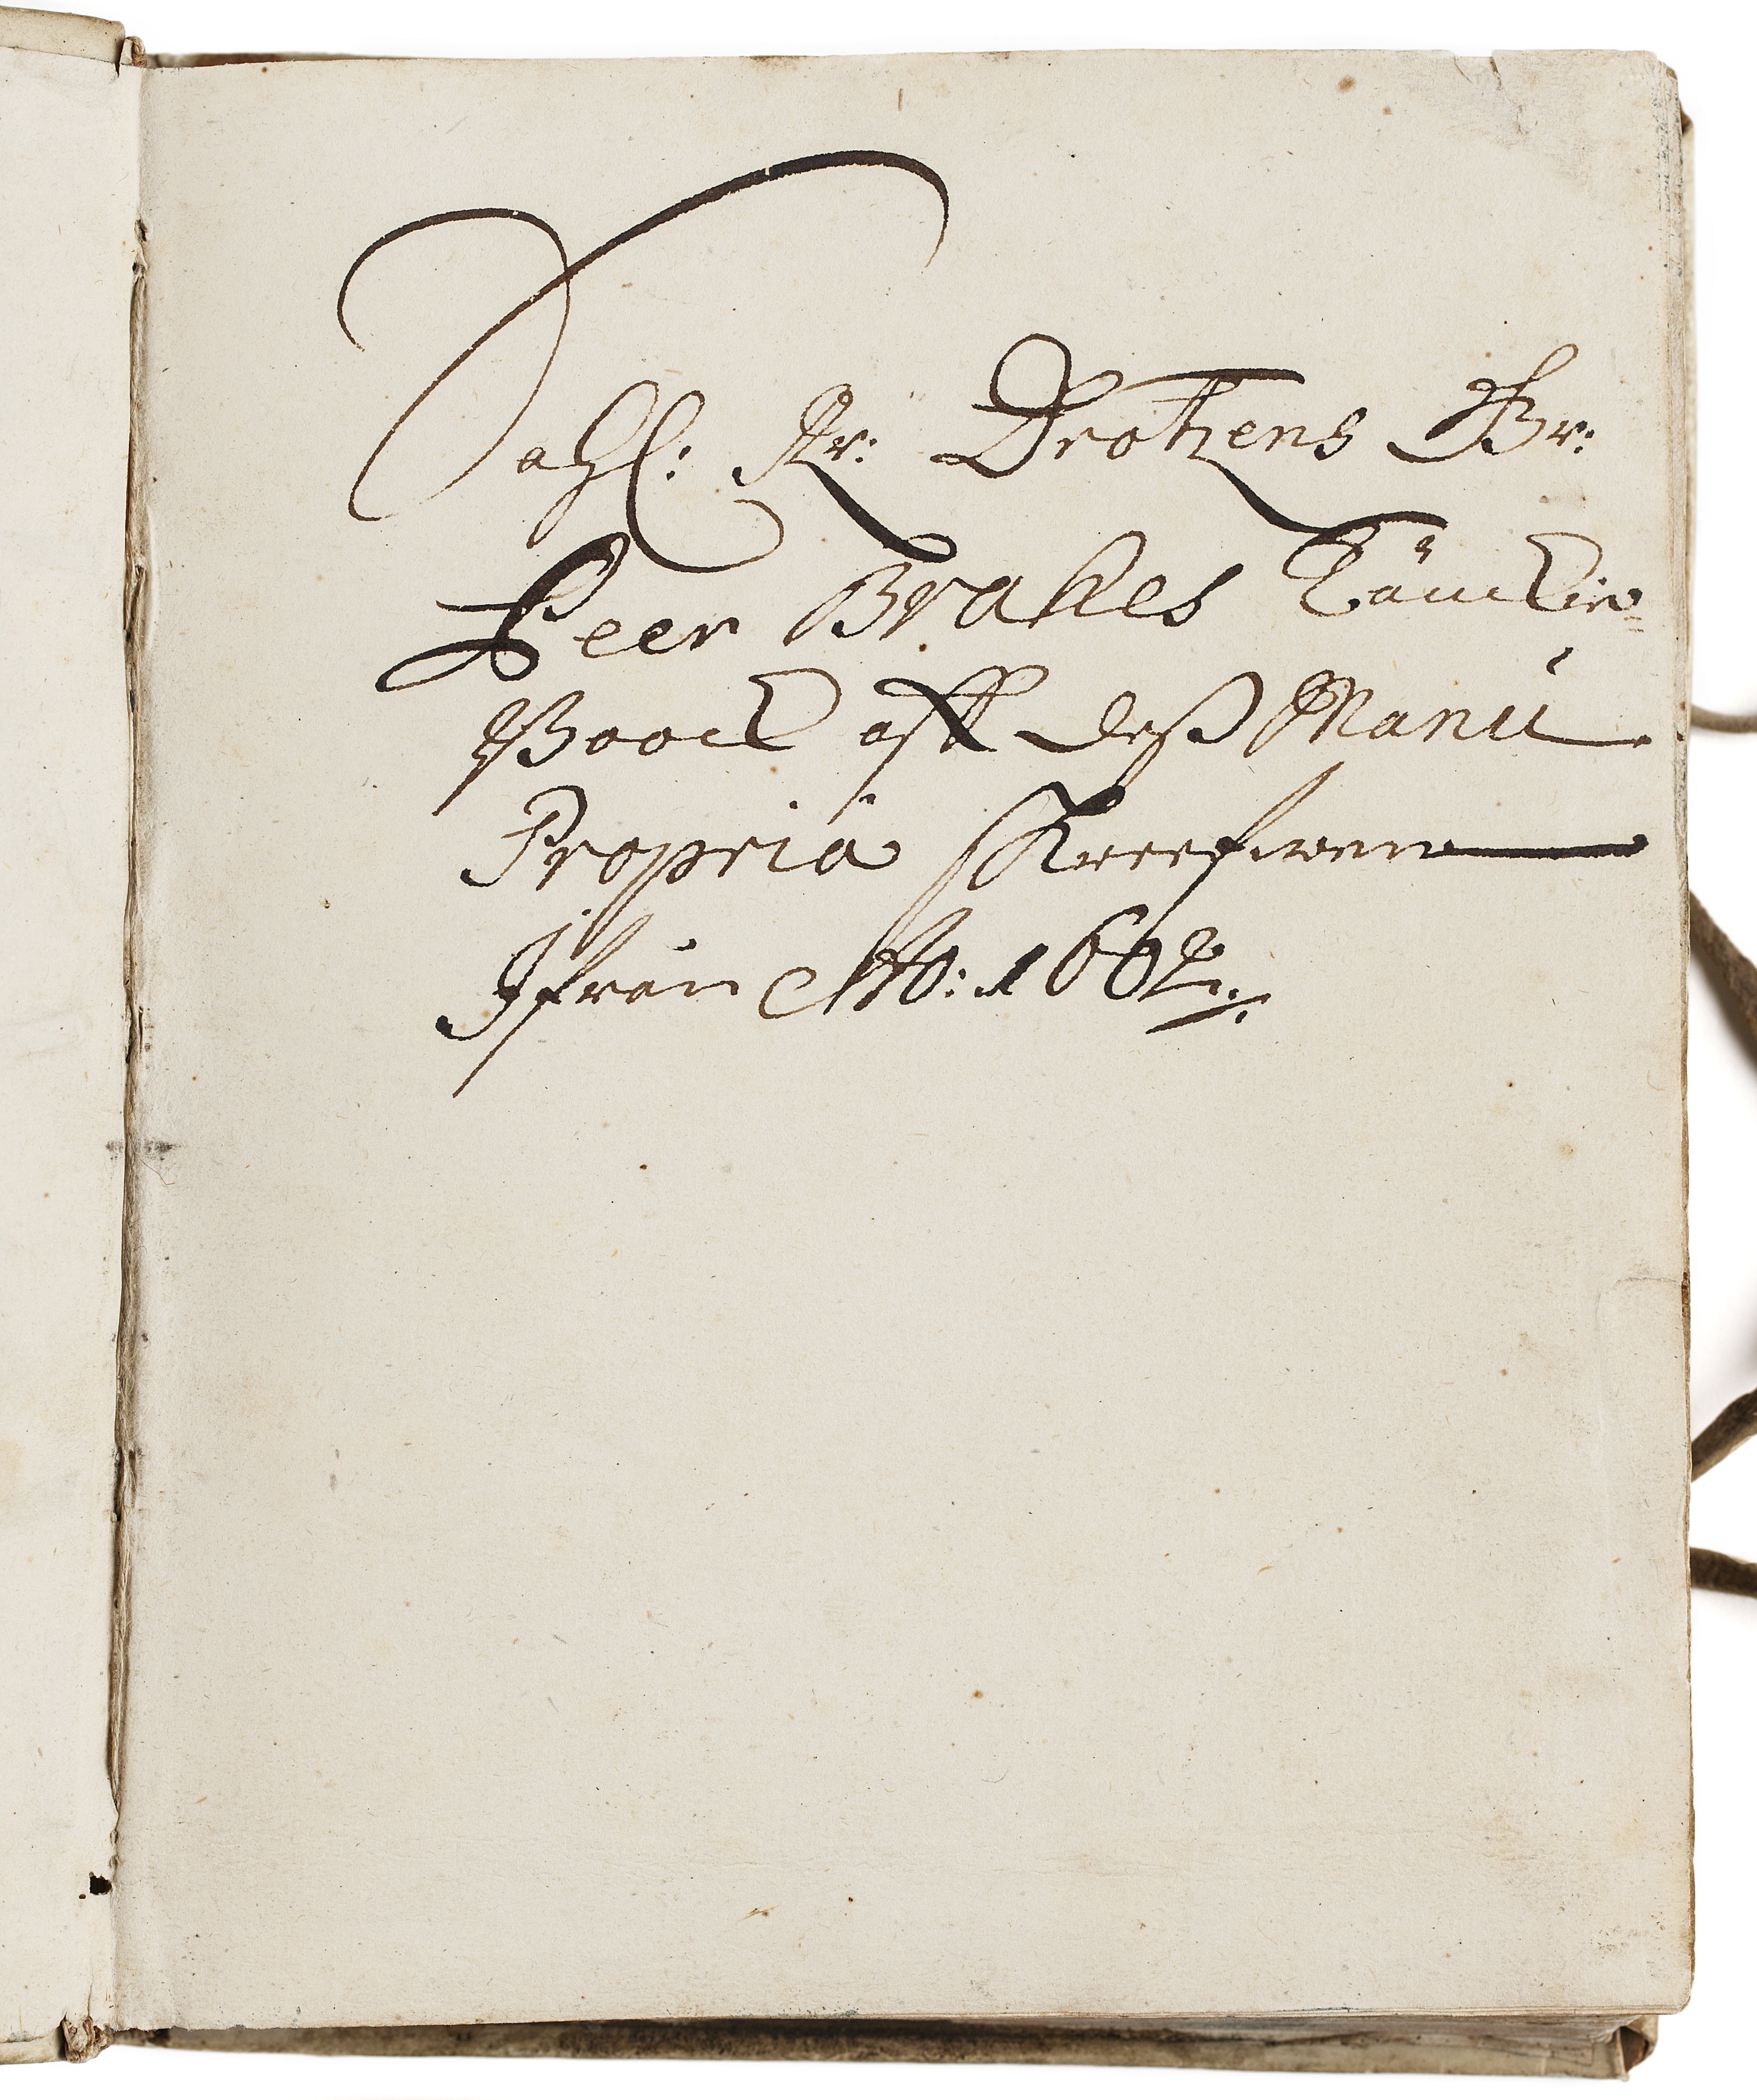 Sahl: Kr: Drotzens Gr:
Peer Brahes Tänckie=
Boock aff deß Manu
Propria Skrefwen
Ifrån Ao: 1602.